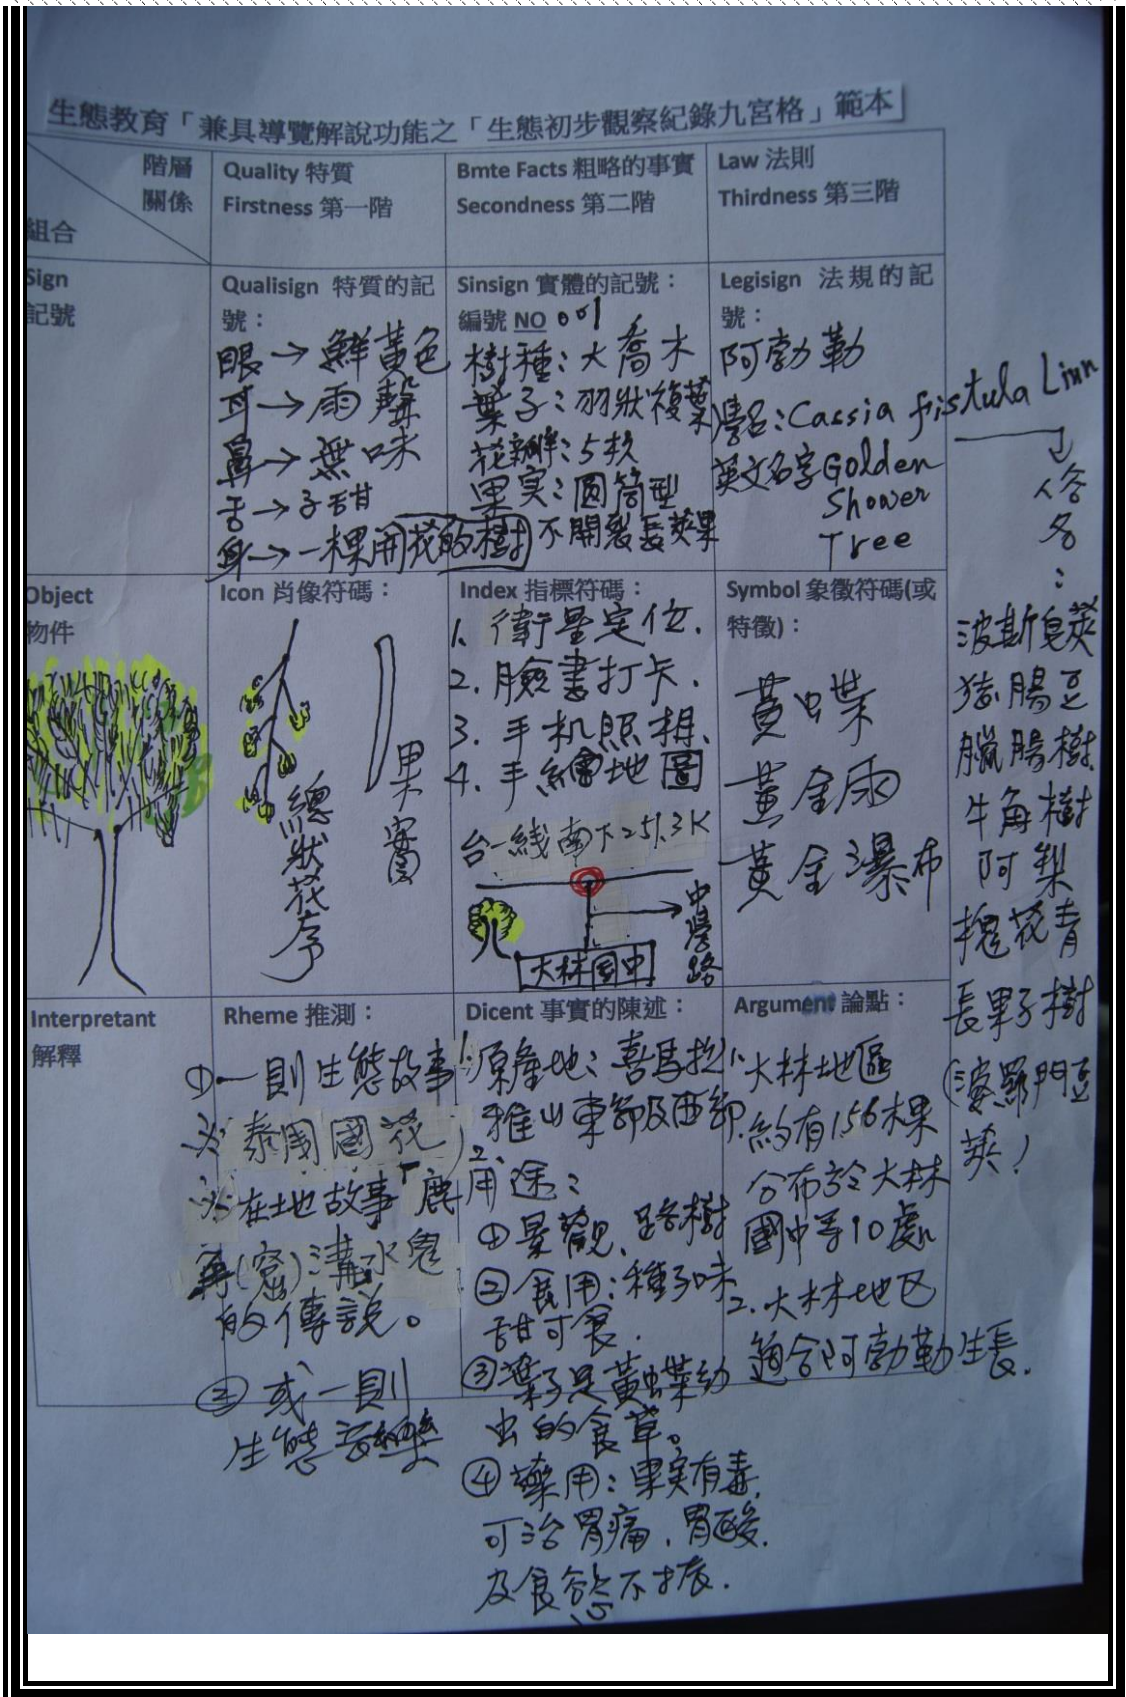 生態教育「兼具導覽解說功能之「生態初步觀察紀錄九宮格」範本
階層
關係
組合
Quality 特質
Firstness 第一階
Bmte Facts 粗略的事實
Secondness 第二階
Law 法則
Thirdness 第三階
Sign
記號
Qualisign 特質的記
號：
眼→鮮黃色
耳→雨聲
鼻→無味
舌→子甜
身→一棵開花的樹
Sinsign 實體的記號：
編號 NO 001
樹種：大喬木
葉子：羽狀複葉
花瓣：5枚
果実：圓筒型
不開裂長莢果
Legisign 法規的記
號：
阿勃勒
學名：Cassia fistula Linn
英文名字Golden
Shower
Tree
俗
名
：
波斯皂莢
猿腸豆
臘腸樹
牛角樹
阿梨
槐花青
長果子樹
(婆羅門皂
莢)
Object
物件
Icon 肖像符碼：
總狀花序
果實
Index 指標符碼：
1. 衛星定位.
2. 臉書打卡.
3. 手机照相.
4. 手繪地圖
台一綫南下251.3K
中學路
大林國中
Symbol 象徵符碼(或
特徵)：
黃蝶
黃金雨
黃金瀑布
Interpretant
解釋
Rheme 推測：
①一則生態故事
※泰國國花
※在地故事「鹿
窟)溝水鬼
的傳説。
② 或一則
生態音樂
Dicent 事實的陳述：
1.原產地：喜馬拉
雅山東部及西部.
2.用途：
①景觀、路樹
②食用：種子味
甜可食.
③葉子是黃蝶幼
虫的食草。
④藥用：果実有毒.
可治胃痛，胃酸.
及食慾不振.
Argument 論點：
1.大林地區
約有156棵
分布於大林
國中等10處
2.大林地区
適合阿勃勒生長.